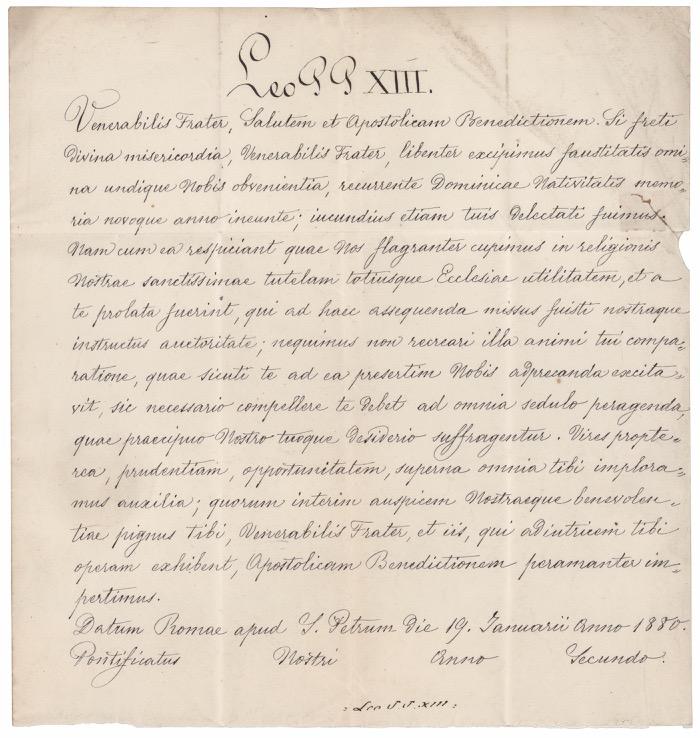 Leo PP XIII.
Venerabilis Frater, Salutem et Apostolicam Benedictionem. Si freti
divina misericordia, Venerabilis Frater, libenter excipimus faustitatis omi-
na undique Nobis obvenientia, recurrente Dominicae Nativitatis memo-
ria novoque anno ineunte; iucundius etiam tuis delectati fuimus.
Nam cum ea respiciant quae Nos flagranter cupimus in religionis
Nostrae sanctissimae tutelam totiusque Ecclesiae utilitatem, et a
te prolata fuerint, qui ad haec assequenda missus fuisti nostraque
instructus auctoritate; nequimus non recreari illa animi tui compa-
ratione, quae sicuti te ad ea presertim Nobis adprecanda excita-
vit, sic necessario compellere te debet ad omnia sedulo peragenda,
quae praecipuo Nostro tuoque desiderio suffragentur. Vires propte-
rea, prudentiam, opportunitatem, superna omnia tibi implora-
mus auxilia; quorum interim auspicem Nostraeque benevolen-
tiae pignus tibi, Venerabilis Frater, et iis, qui adiutricem tibi
operam exhibent, Apostolicam Benedictionem peramanter im-
pertimus.
Datum Romae apud S. Petrum die 19. Ianuarii Anno 1880.
Pontificatus Nostri Anno Secundo.
: Leo P.P. XIII :